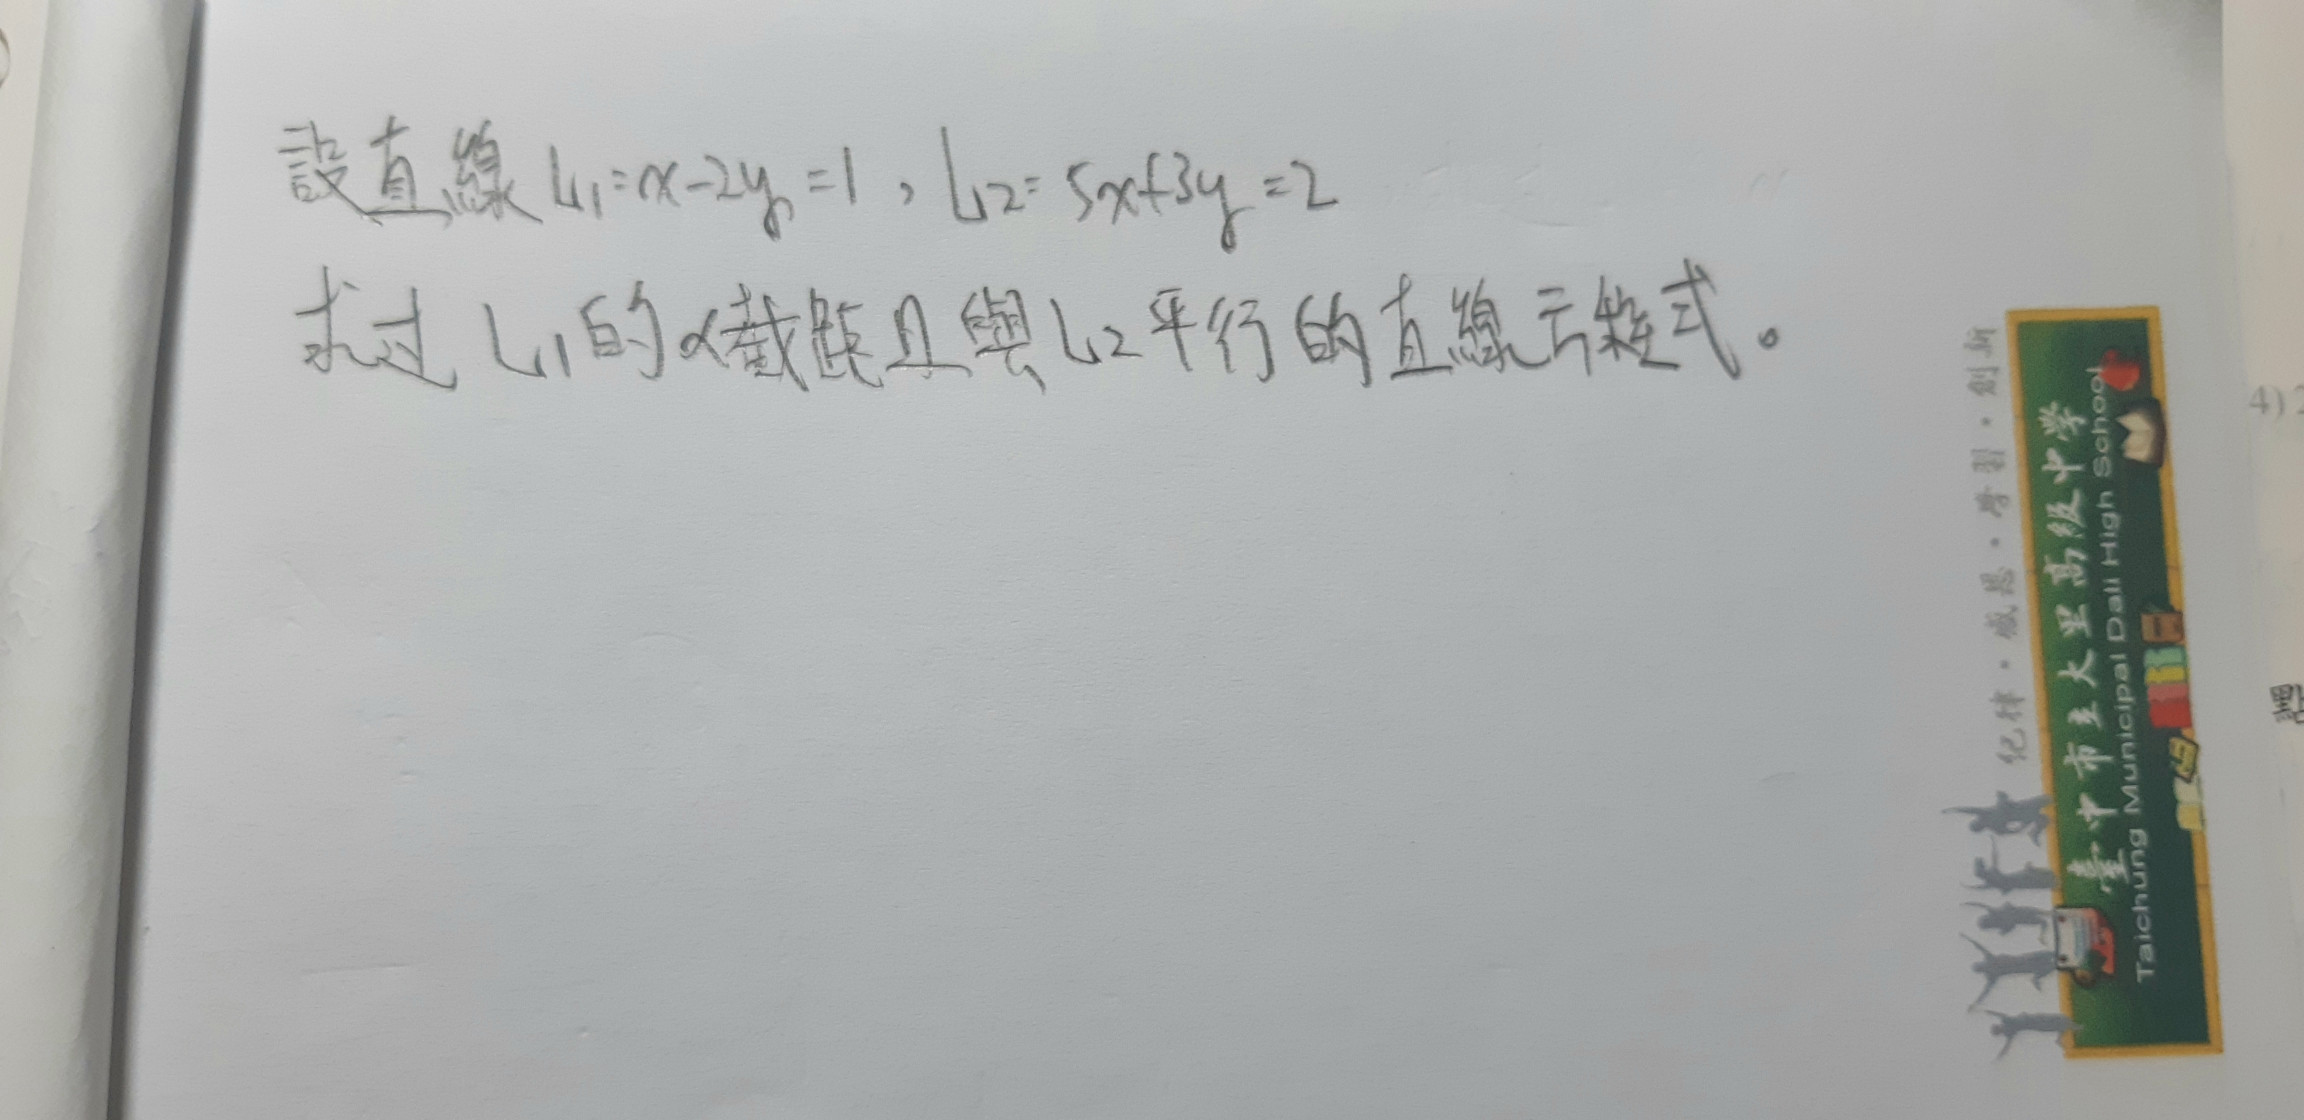 設直線 L₁=x-2y=1，L₂=5x+3y=2
求过 L₁的x截距且與L₂平行的直線方程式。
紀律·感恩·學習·創新
臺中市立大里高級中學
Taichung Municipal Dali High School
4) 2
點